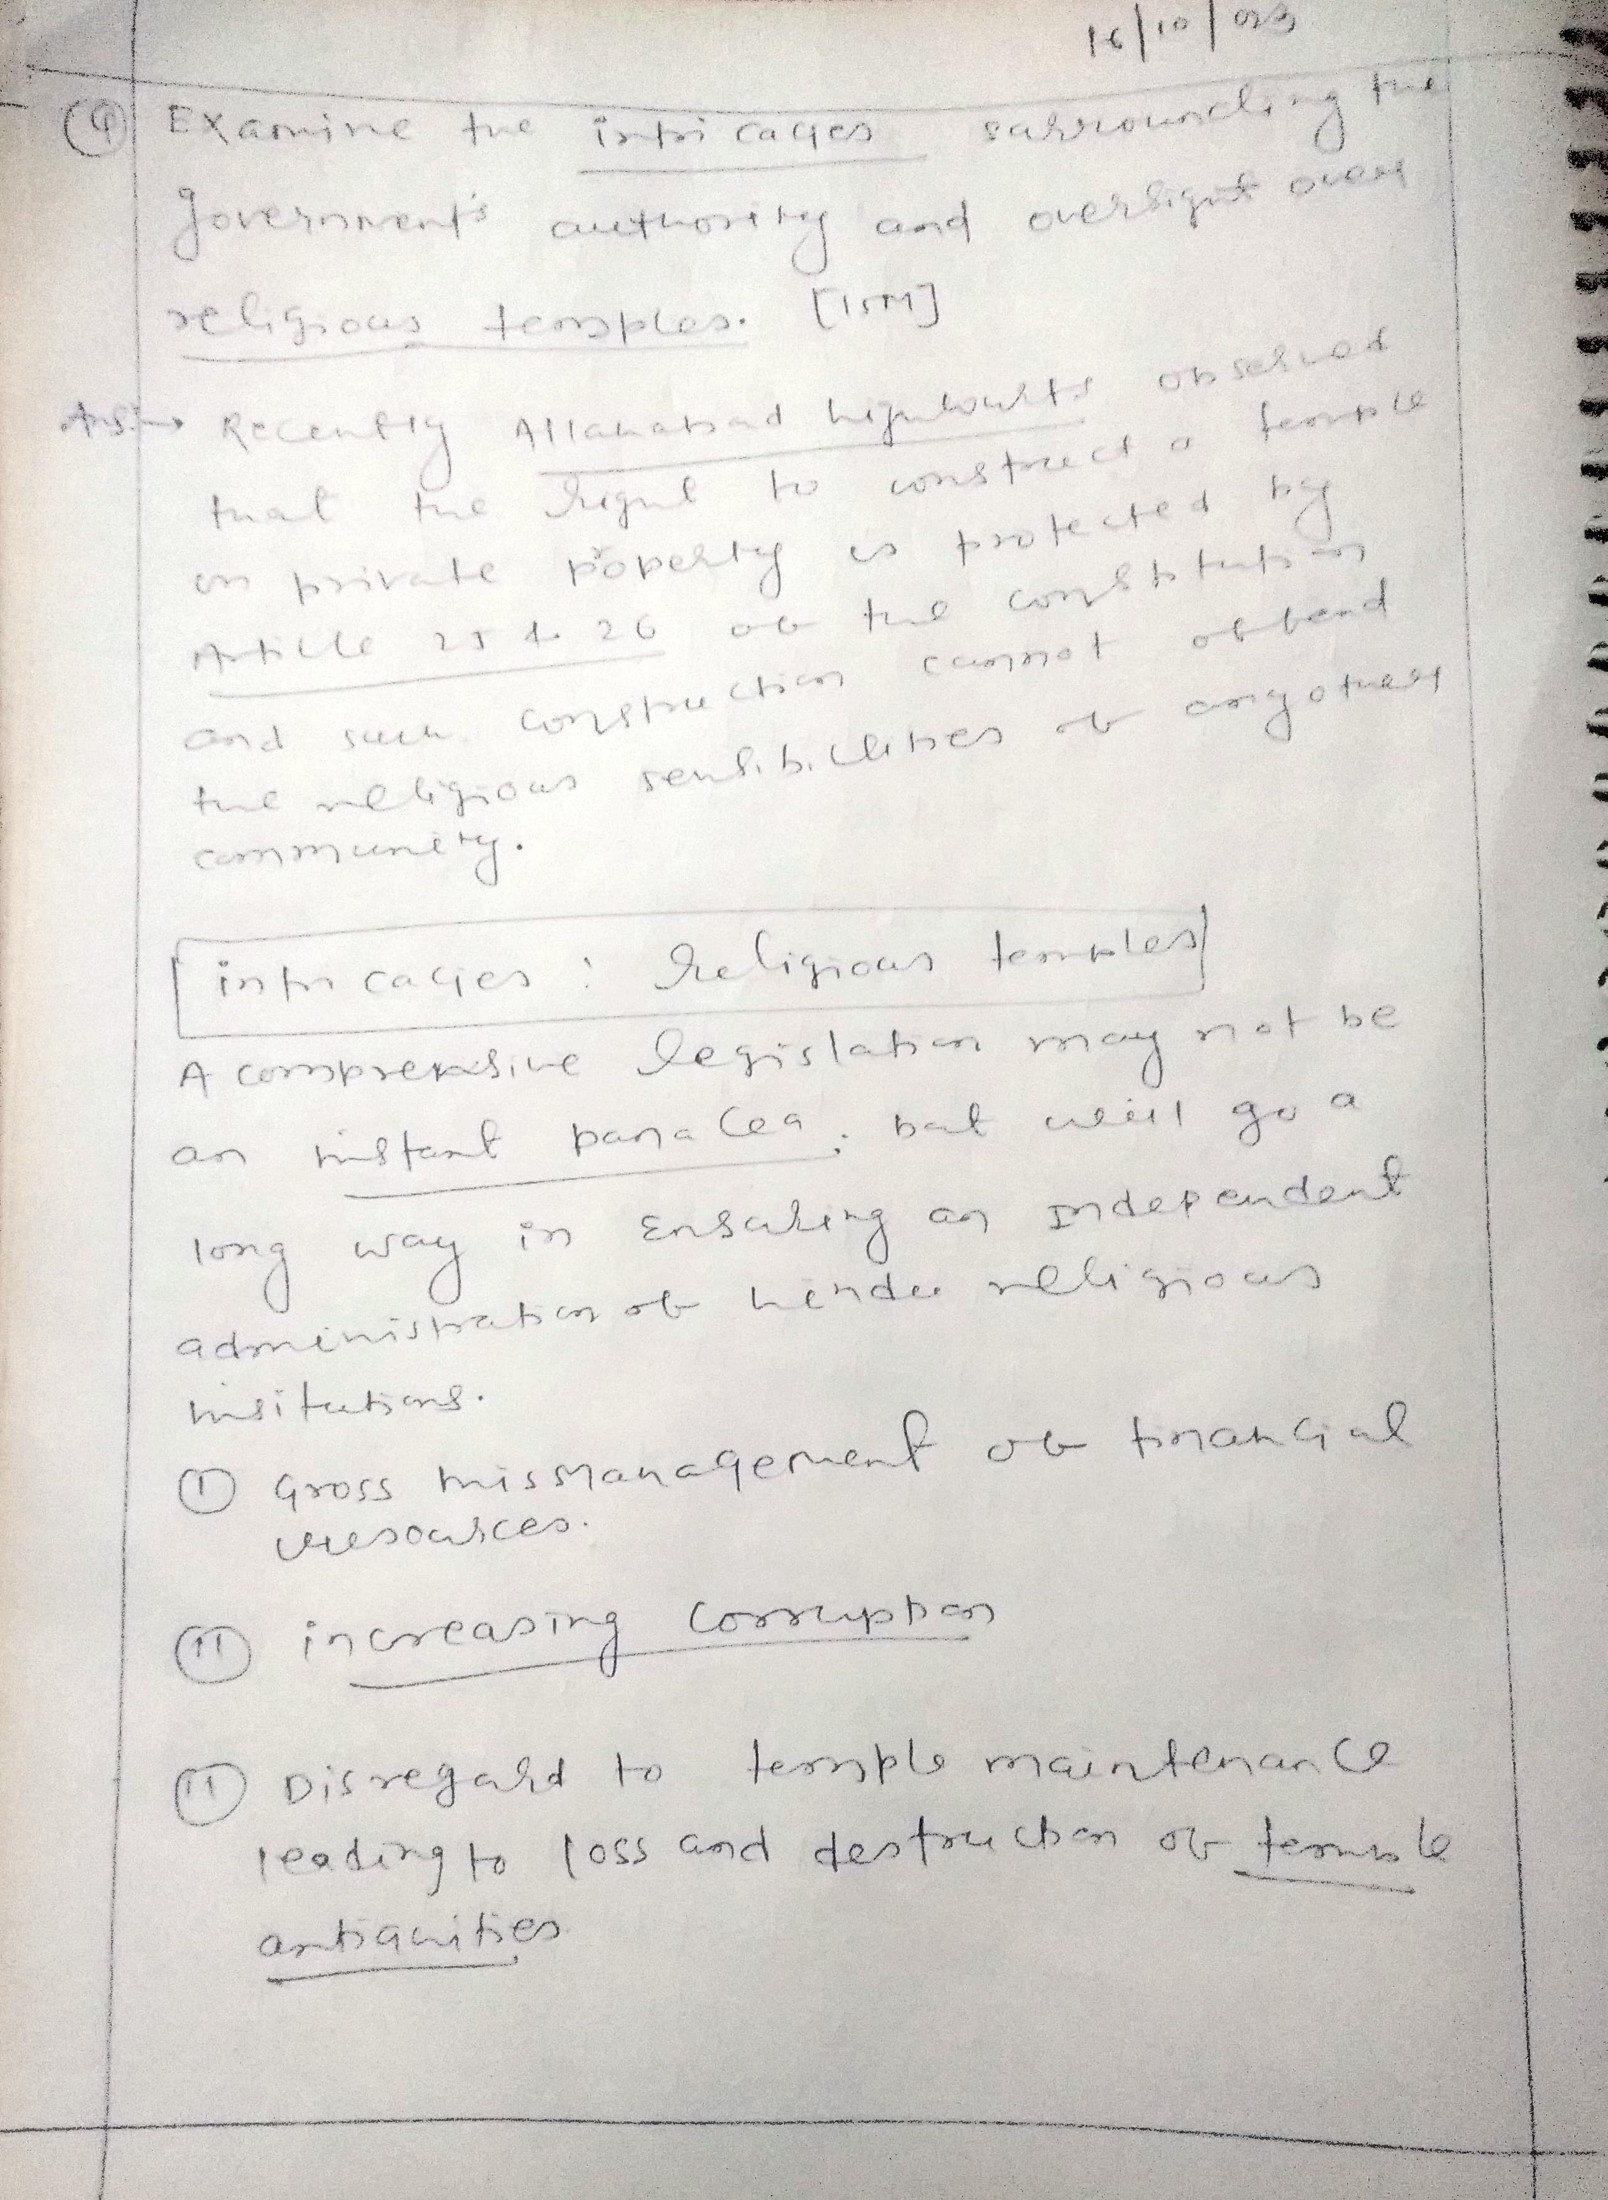 16/10/023
(Q) Examine the intricacies surrounding the
Government's authority and oversight over
religious temples. [15M]
Ans:→ Recently Allahabad highcourt's observed
that the right to construct a temple
on private poperty is protected by
Article 25 & 26 of the constitution
and such construction cannot offend
the religious sensibilities of any other
community.
intricacies : Religious temples
A comprehensive legislation may not be
an instant panacea, but will go a
long way in Ensuring an Independent
administration of hindu religious
insitutions.
(I) Gross missmanagement of financial
resources.
(II) increasing corruption
(II) Disregard to temple maintenance
leading to loss and destruction of temple
antiquities.